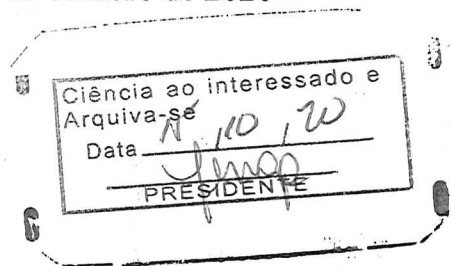 Ciência ao interessado e
Arquiva-se
Data , 10 , 20
PRESIDENTE